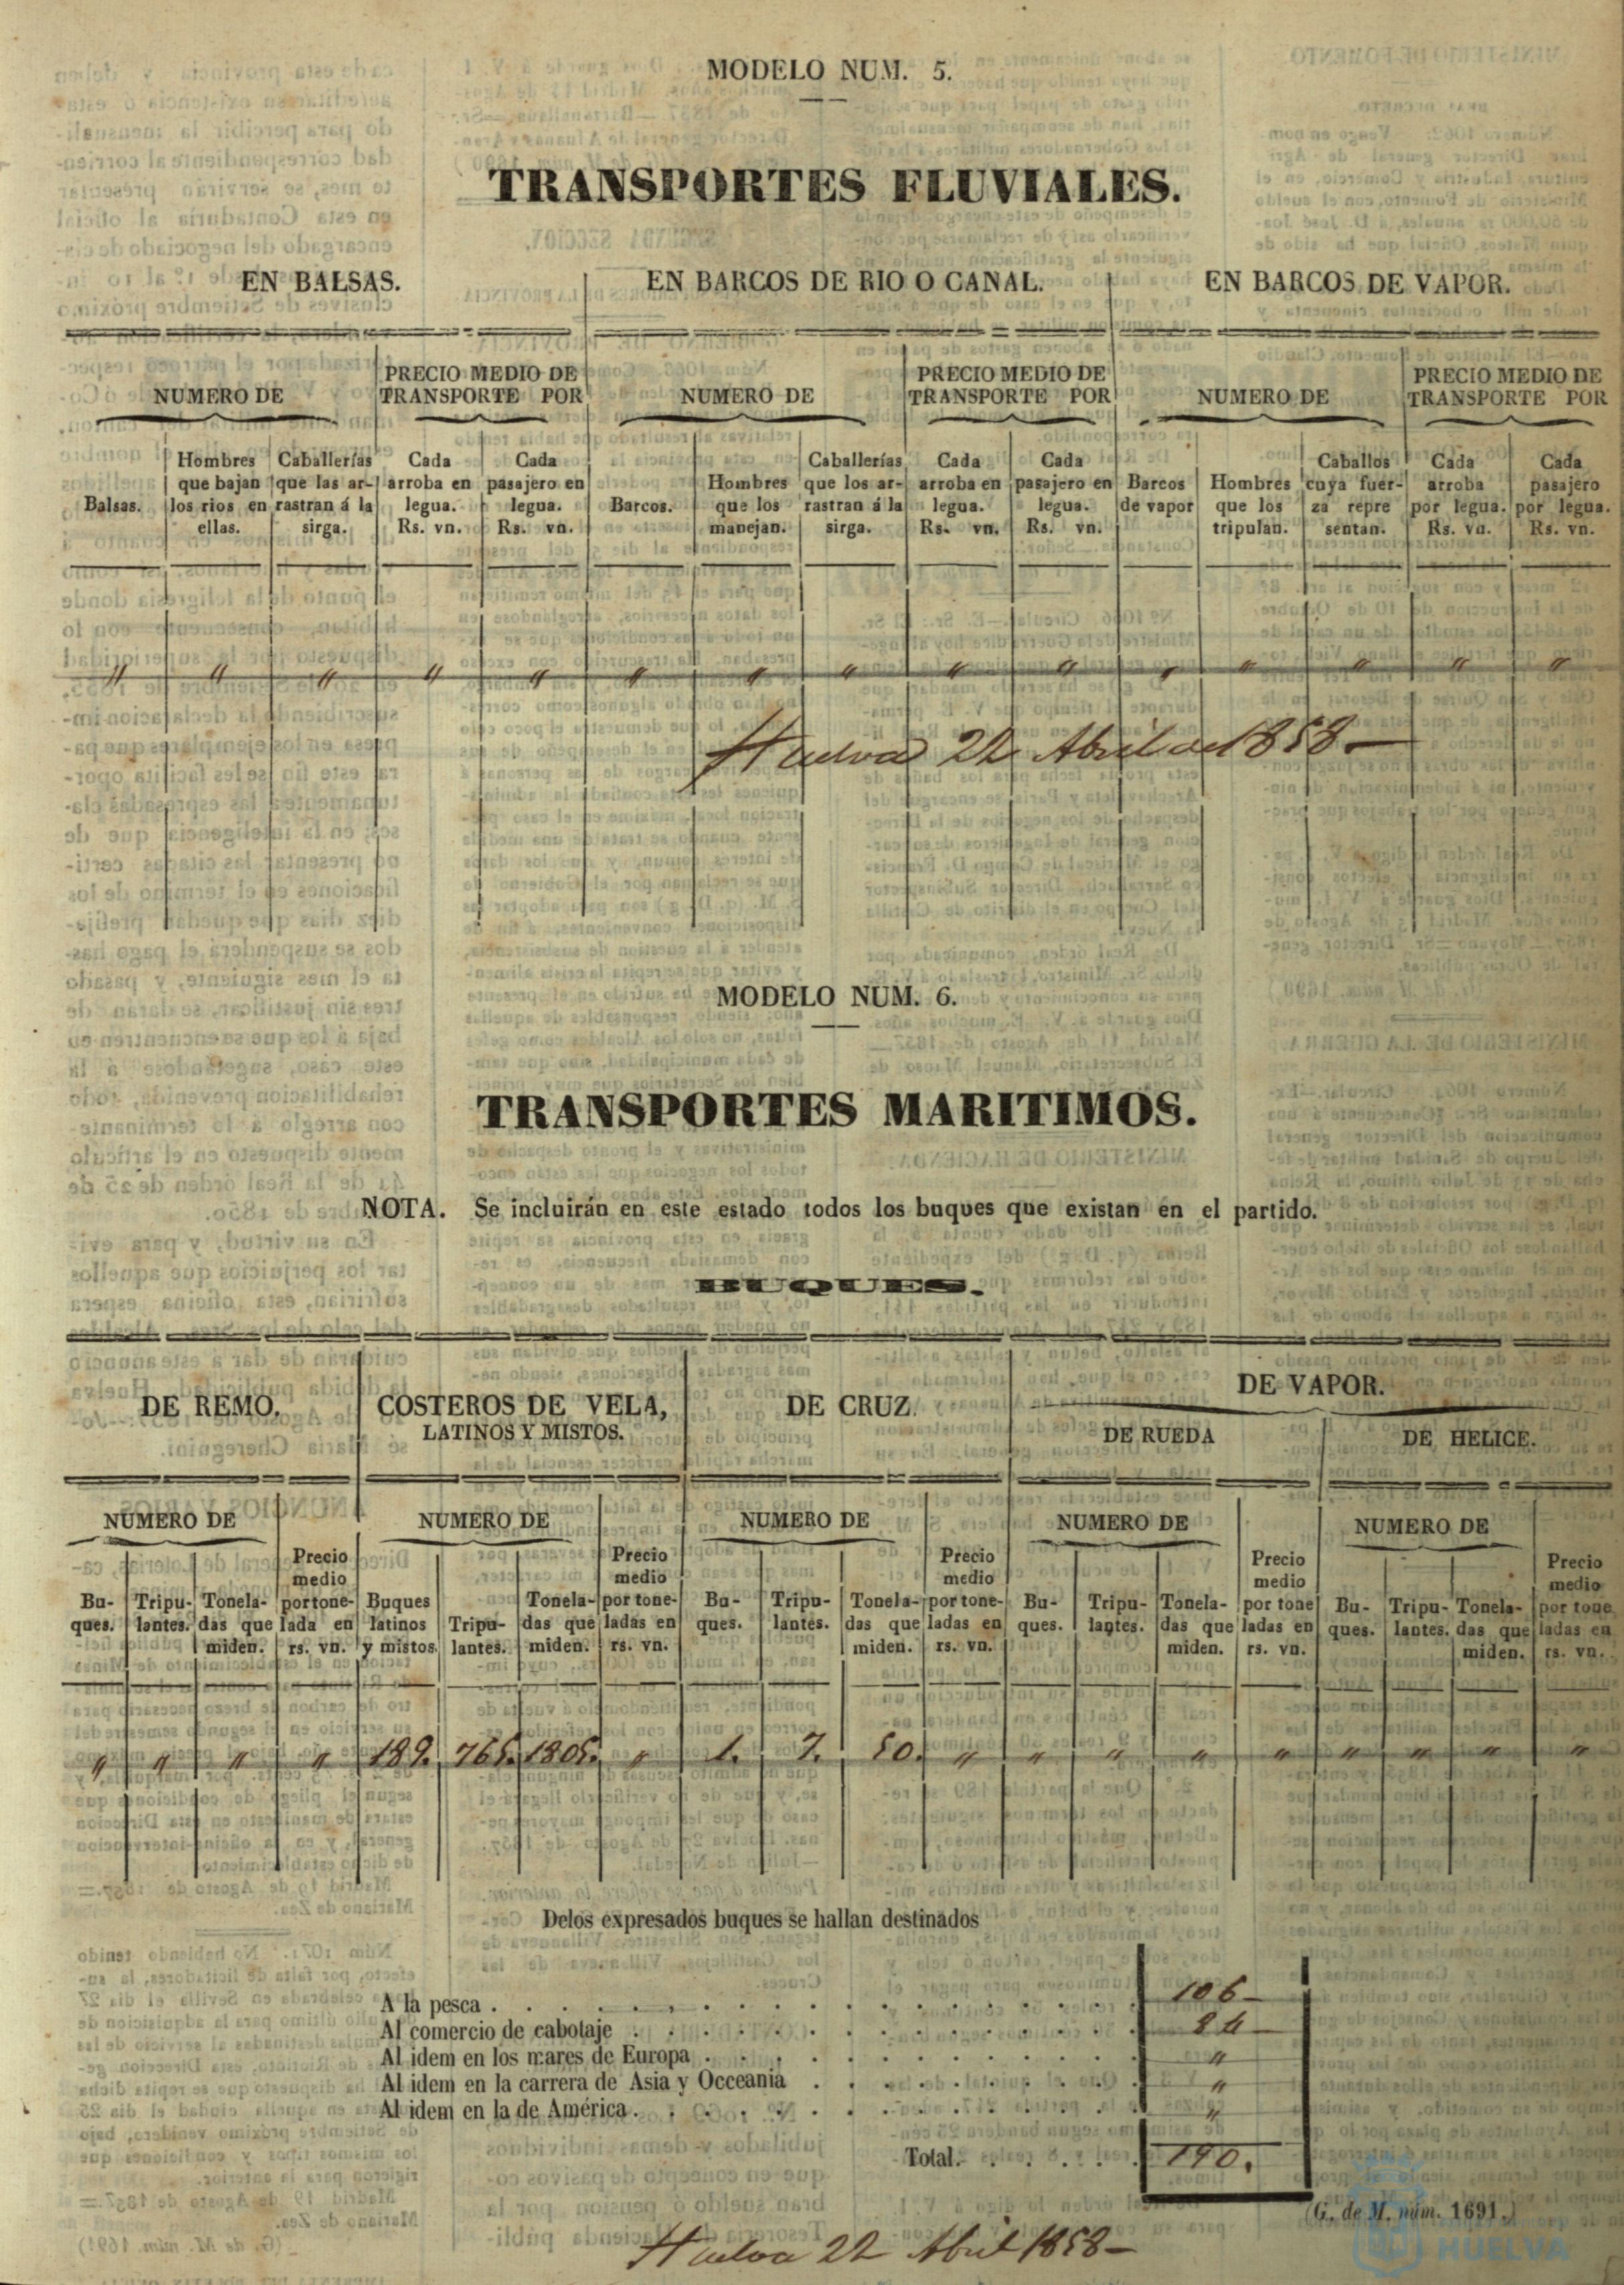 MODELO NUM. 5.
TRANSPORTES FLUVIALES.
EN BALSAS.
EN BARCOS DE RIO O CANAL.
EN BARCOS DE VAPOR.
NUMERO DE
PRECIO MEDIO DE
TRANSPORTE POR
NUMERO DE
PRECIO MEDIO DE
TRANSPORTE POR
NUMERO DE
PRECIO MEDIO DE
TRANSPORTE POR
Balsas.
Hombres
que bajan
los rios en
ellas.
Caballerías
que las ar-
rastran á la
sirga.
Cada
arroba en
legua.
Rs. vn.
Cada
pasajero en
legua.
Rs. vn.
Barcos.
Hombres
que los
manejan.
Caballerías
que los ar-
rastran á la
sirga.
Cada
arroba en
legua.
Rs. vn.
Cada
pasajero en
legua.
Rs. vn.
Barcos
de vapor
Hombres
que los
tripulan.
Caballos
cuya fuer-
za repre
sentan.
Cada
arroba
por legua.
Rs. vn.
Cada
pasajero
por legua.
Rs. vn.
" " " " " " " " " " " " " " "
Huelva 22 Abril de 1858
MODELO NUM. 6.
TRANSPORTES MARITIMOS.
NOTA. Se incluirán en este estado todos los buques que existan en el partido.
BUQUES.
DE REMO.
COSTEROS DE VELA,
LATINOS Y MISTOS.
DE CRUZ.
DE VAPOR.
DE RUEDA
DE HELICE.
NUMERO DE
NUMERO DE
NUMERO DE
NUMERO DE
NUMERO DE
Bu-
ques.
Tripu-
lantes.
Tonela-
das que
miden.
Precio
medio
por tone-
lada en
rs. vn.
Buques
latinos
y mistos
Tripu-
lantes.
Tonela-
das que
miden.
Precio
medio
por tone-
ladas en
rs. vn.
Bu-
ques.
Tripu-
lantes.
Tonela-
das que
miden.
Precio
medio
por tone-
ladas en
rs. vn.
Bu-
ques.
Tripu-
lantes.
Tonela-
das que
miden.
Precio
medio
por tone
ladas en
rs. vn.
Bu-
ques.
Tripu-
lantes.
Tonela-
das que
miden.
Precio
medio
por tone
ladas en
rs. vn.
" " " " 189. 765. 1805. " 1. 7. 50. " " " " " " " " "
Delos expresados buques se hallan destinados
A la pesca . . . . . . . . . . . . . 106
Al comercio de cabotaje . . . . . . . . . . . 84
Al idem en los mares de Europa . . . . . . . . . "
Al idem en la carrera de Asia y Occeania . . . . . . . "
Al idem en la de América . . . . . . . . . . . "
Total. . . . . . 190.
(G. de M. núm. 1691.)
Huelva 22 Abril 1858
HUELVA